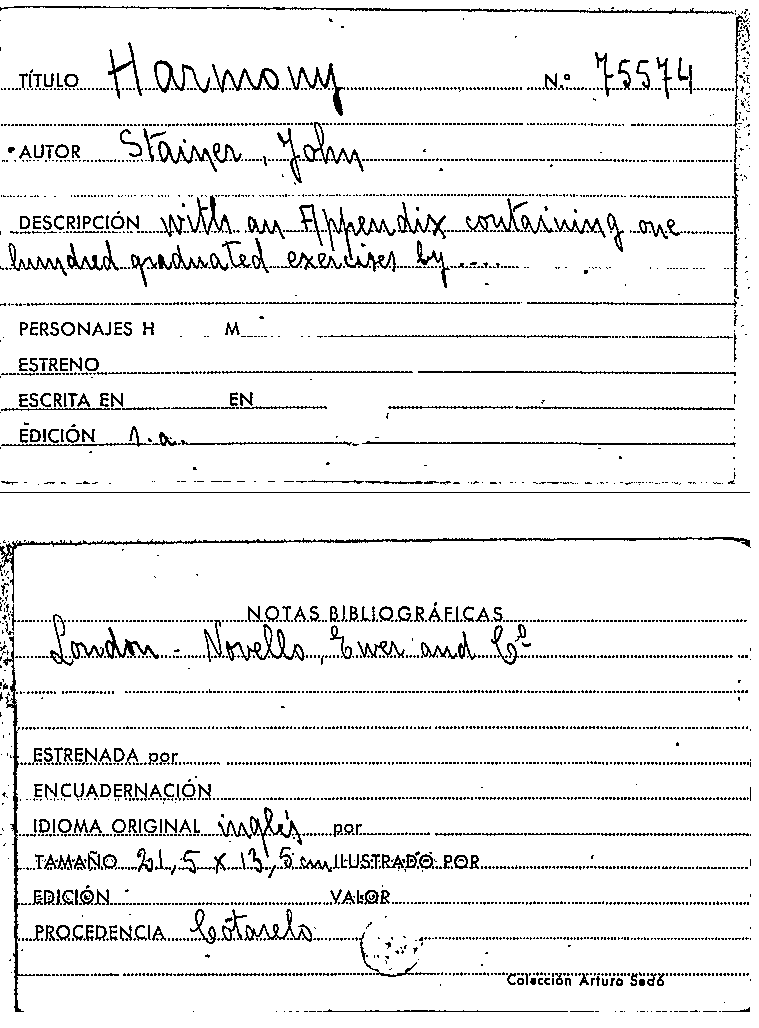 TÍTULO Harmony N.º 75574
AUTOR Stainer, John
DESCRIPCIÓN with an Appendix containing one
hundred graduated exercises by ....
PERSONAJES H M
ESTRENO
ESCRITA EN EN
EDICIÓN s.a.
NOTAS BIBLIOGRÁFICAS
London - Novello, Ewer and Cº
ESTRENADA por
ENCUADERNACIÓN
IDIOMA ORIGINAL inglés por
TAMAÑO 21,5 x 13,5 cm ILUSTRADO POR
EDICIÓN VALOR
PROCEDENCIA Cotarelo
Colección Arturo Sedó